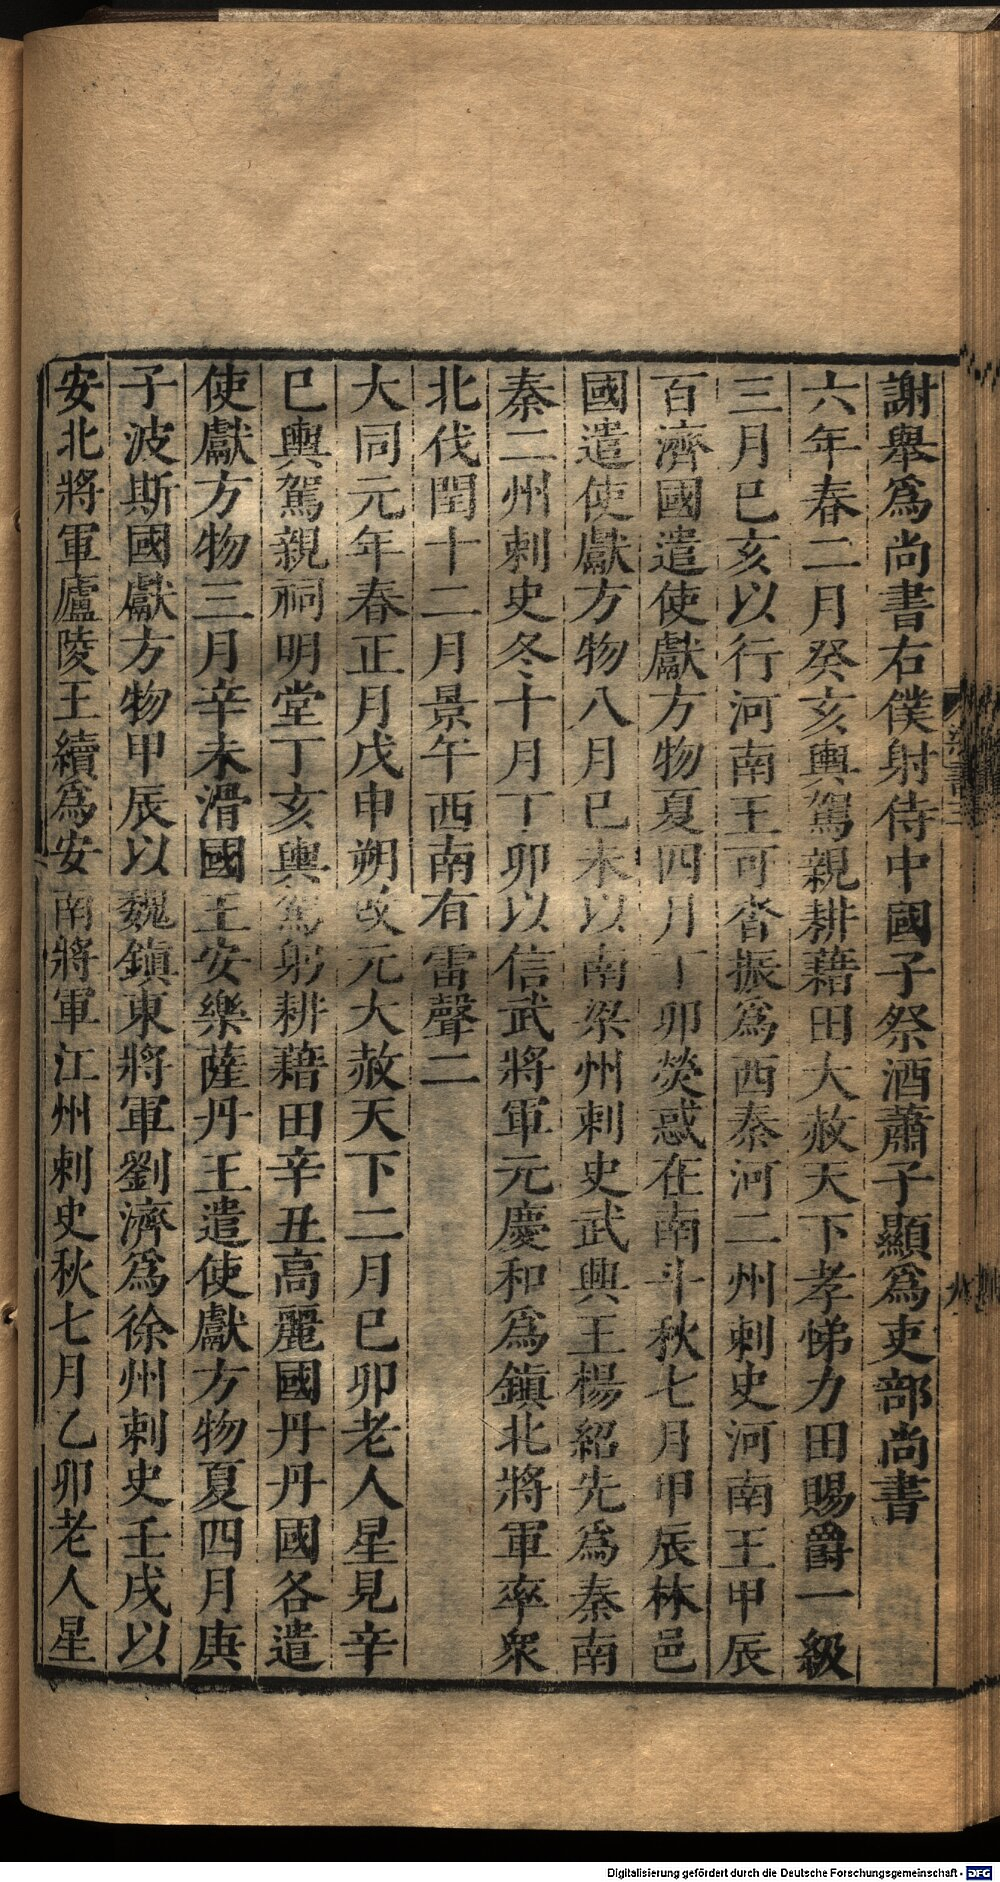 謝舉爲尚書右僕射侍中國子祭酒蕭子顯爲吏部尚書
六年春二月癸亥輿駕親耕藉田大赦天下孝悌力田賜爵一級
三月巳亥以行河南王可沓振爲西秦河二州刺史河南王甲辰
百濟國遣使獻方物夏四月丁卯熒惑在南斗秋七月甲辰林邑
國遣使獻方物八月巳未以南梁州刺史武興王楊紹先爲秦南
秦二州刺史冬十月丁卯以信武將軍元慶和爲鎭北將軍率衆
北伐閏十二月景午西南有雷聲二
大同元年春正月戊申朔改元大赦天下二月巳卯老人星見辛
巳輿駕親祠明堂丁亥輿駕躬耕藉田辛丑高麗國丹丹國各遣
使獻方物三月辛未滑國王安樂薩丹王遣使獻方物夏四月庚
子波斯國獻方物甲辰以魏鎭東將軍劉濟爲徐州刺史壬戌以
安北將軍廬陵王續爲安南將軍江州刺史秋七月乙卯老人星
Digitalisierung gefördert durch die Deutsche Forschungsgemeinschaft - DFG